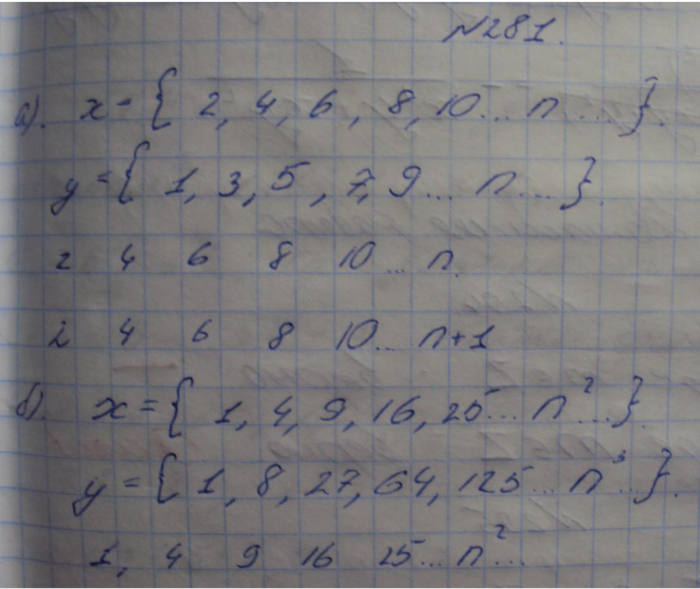 №281.
а). x = { 2, 4, 6, 8, 10... n ... }.
y = { 1, 3, 5, 7, 9... n ... }.
2 4 6 8 10... n.
2 4 6 8 10... n+1
б). x = { 1, 4, 9, 16, 25... n² ... }.
y = { 1, 8, 27, 64, 125... n³ ... }.
1, 4 9 16 25... n² ...